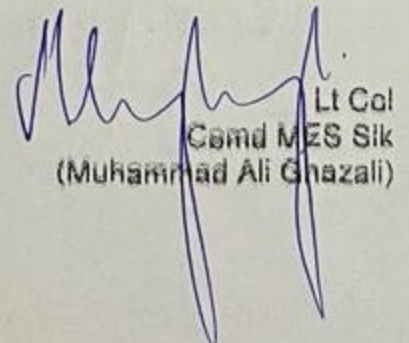 Lt Col
Comd MES Slk
(Muhammad Ali Ghazali)